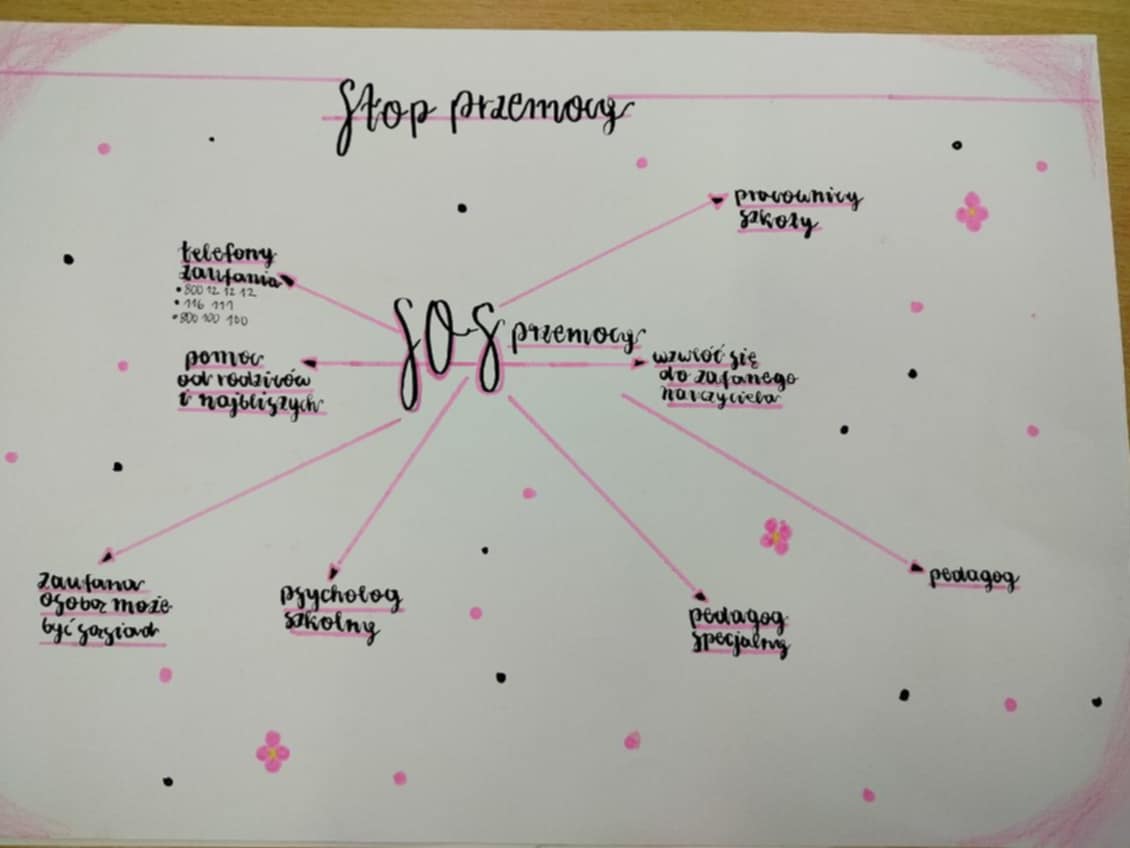 Stop przemocy
pracownicy
szkoły
telefony
zaufania
• 800 12 12 12
• 116 111
• 800 100 100
SOS przemocy
pomoc
od rodziców
i najbliszych
wzwróć się
do zafanego
nauczyciela
zaufana
osoba może
być sąsiad
psycholog
szkolny
pedagog
specjalny
pedagog